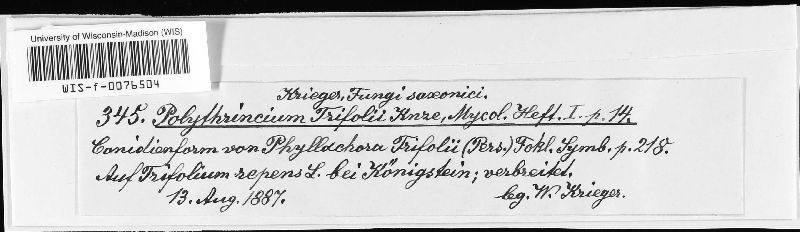 University of Wisconsin-Madison (WIS)
WIS-f-0076504
Krieger, Fungi saxonici.
345. Polythrincium Trifolii Knze, Mycol. Heft. I. p. 14.
Conidienform von Phyllachora Trifolii (Pers.) Fckl. Symb. p. 218.
Auf Trifolium repens L. bei Königstein; verbreitet.
13. Aug. 1887. leg. W. Krieger.